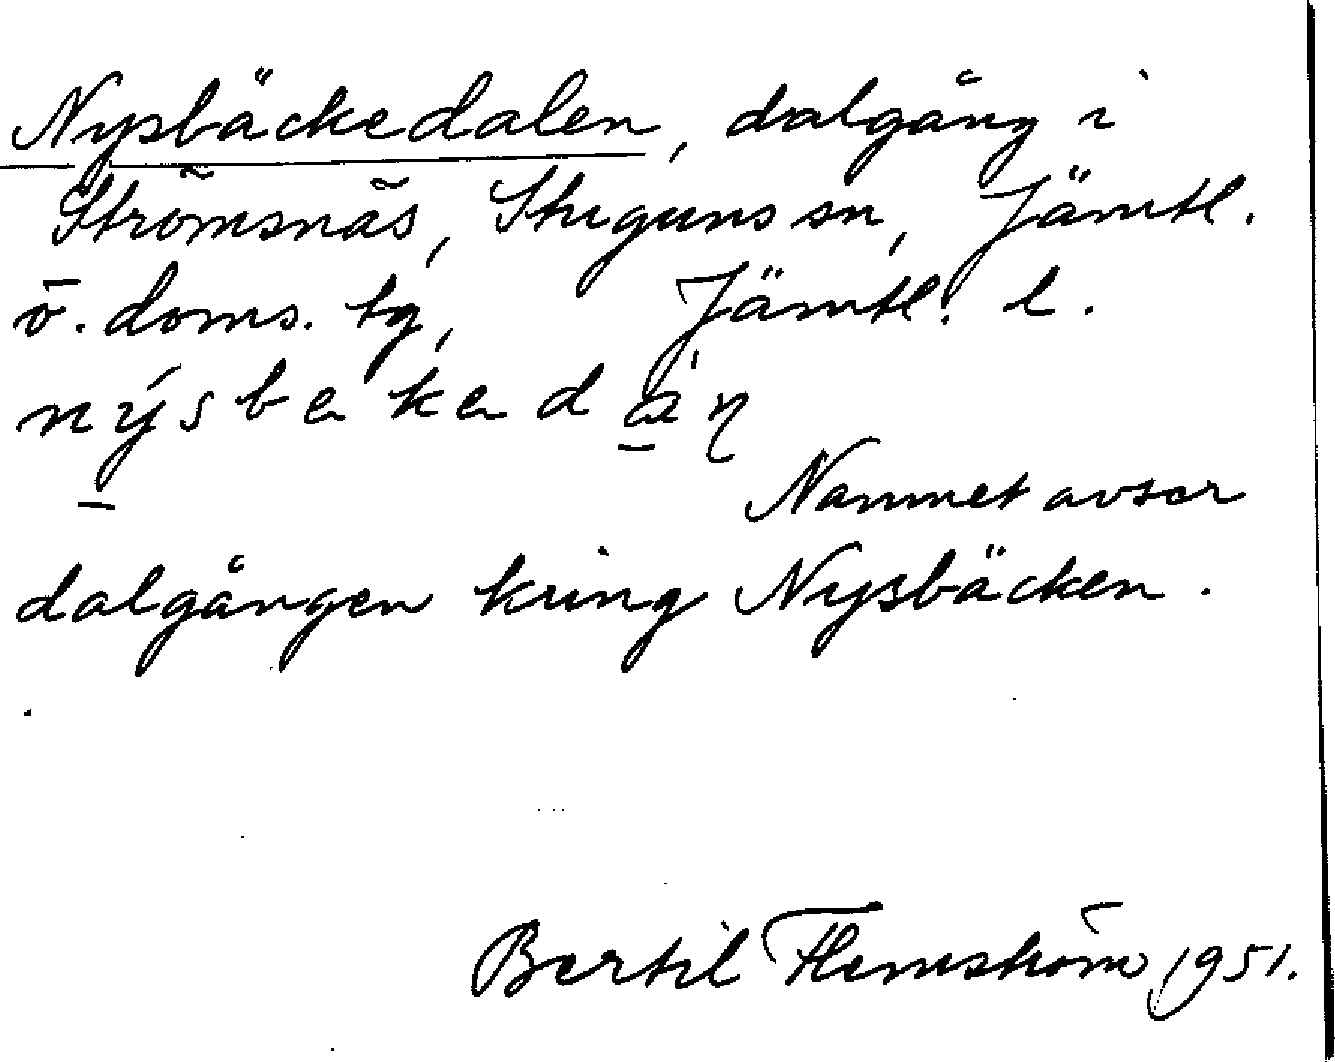 Nysbäckedalen, dalgång i
Strömsnäs, Stuguns sn, Jämtl.
ö. doms. tg, Jämtl. l.
Namnet avser
dalgången kring Nysbäcken.
Bertil Flemström, 1951.